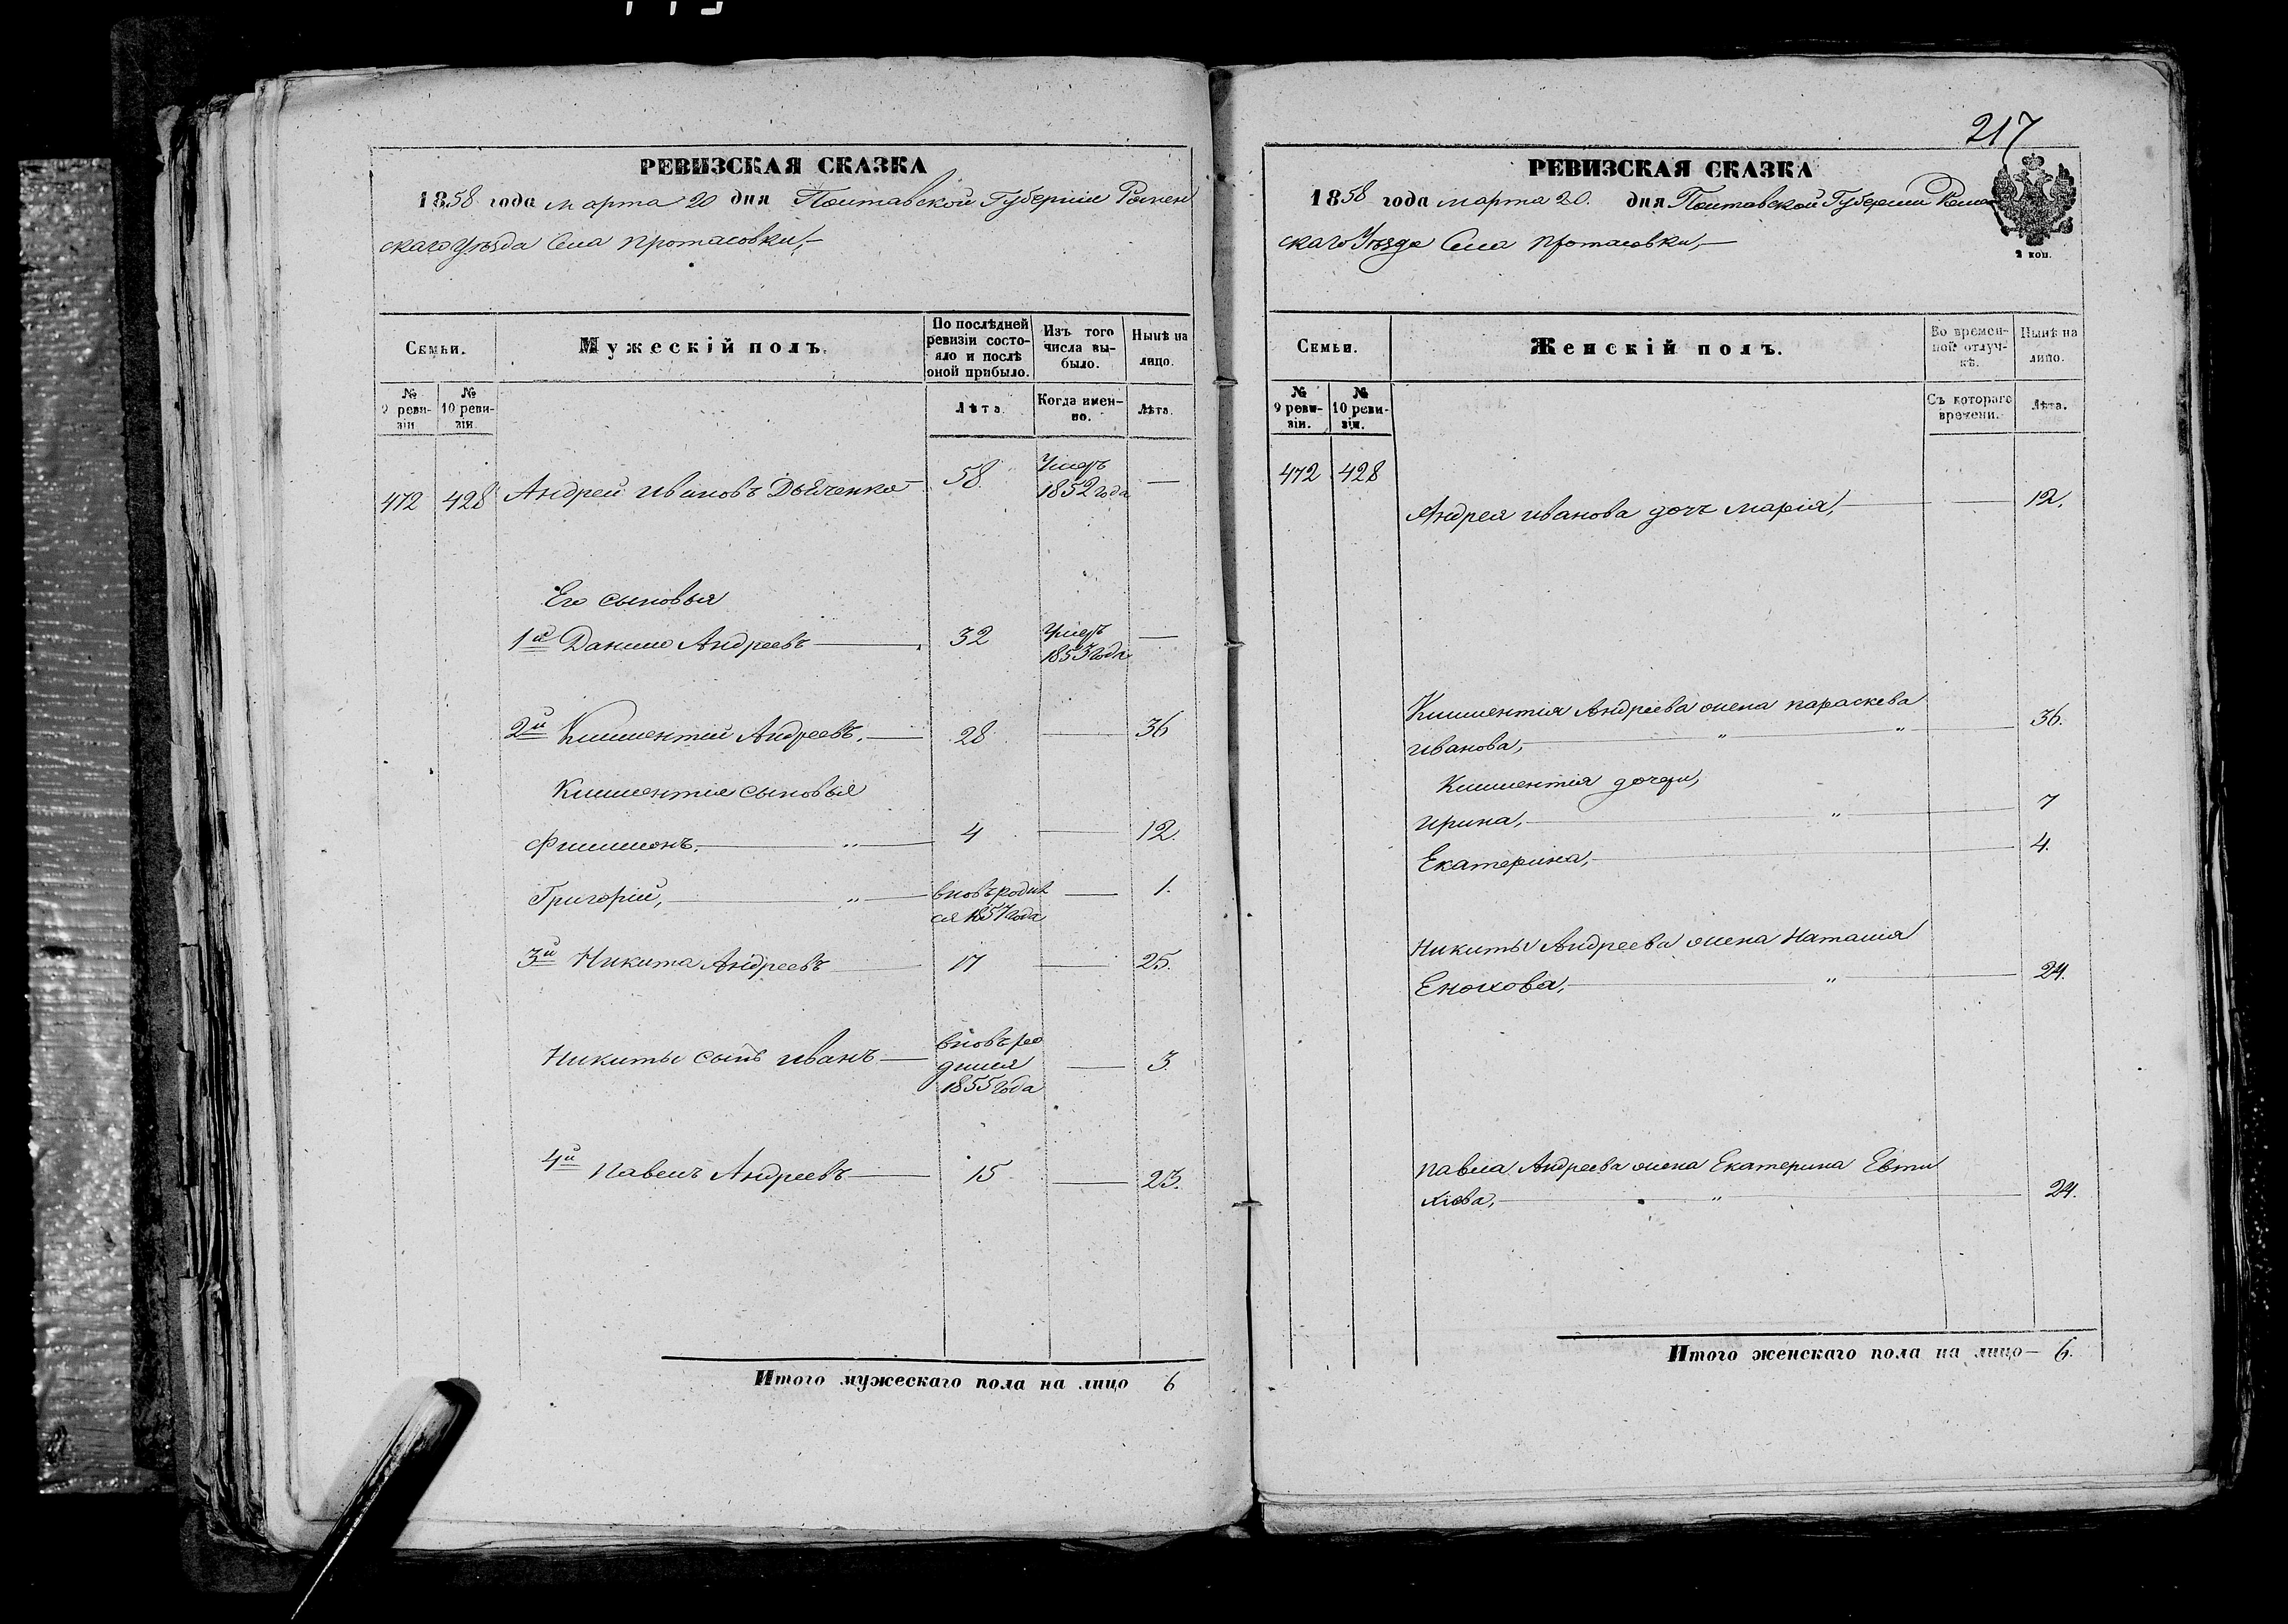 217
РЕВИЗСКАЯ СКАЗКА
1858 года марта 20 дня Полтавской Губерніи Ромен
скаго Уѣзда Села Протасовки,
Семьи.
Мужескій полъ.
По послѣдней ревизіи состояло и послѣ оной прибыло.
Изъ того числа выбыло.
Нынѣ на лицо.
№ 9 ревизіи
№ 10 ревизіи.
Лѣта.
Когда именно.
Лѣта.
472 428 Андрей Ивановъ Дьяченко 58 Умеръ 1852 года —
Его сыновья
1й Данило Андреевъ 32 Умеръ 1853 года —
2й Климентій Андреевъ. 28 — 36
Климентія сыновья
Филимонъ. " 4 — 12.
Григорій, " вновь родил
ся 1857 года — 1.
3й Никита Андреевъ 17 — 25.
Никиты сынъ Иванъ вновь ро
дился
1855 года — 3.
4й Павелъ Андреевъ 15 — 23.
Итого мужескаго пола на лицо 6
РЕВИЗСКАЯ СКАЗКА
1858 года марта 20. дня Полтавской Губерніи Ромен
скаго Уѣзда Села Протасовки,
2 коп.
Семьи.
Женскій полъ.
Во временной отлучкѣ.
Нынѣ на лицо.
№ 9 ревизіи.
№ 10 ревизіи.
Съ котораго времени.
Лѣта.
472 428
Андрея Иванова дочь Марія, — 12.
Климентія Андреева жена Параскева
Иванова, " " — 36.
Климентія дочери,
Ирина, " — 7
Екатерина, — 4.
Никиты Андреева жена Наталія
Енохова, " — 24.
Павла Андреева жена Екатерина Евти
хіева, " — 24.
Итого женскаго пола на лицо — 6.